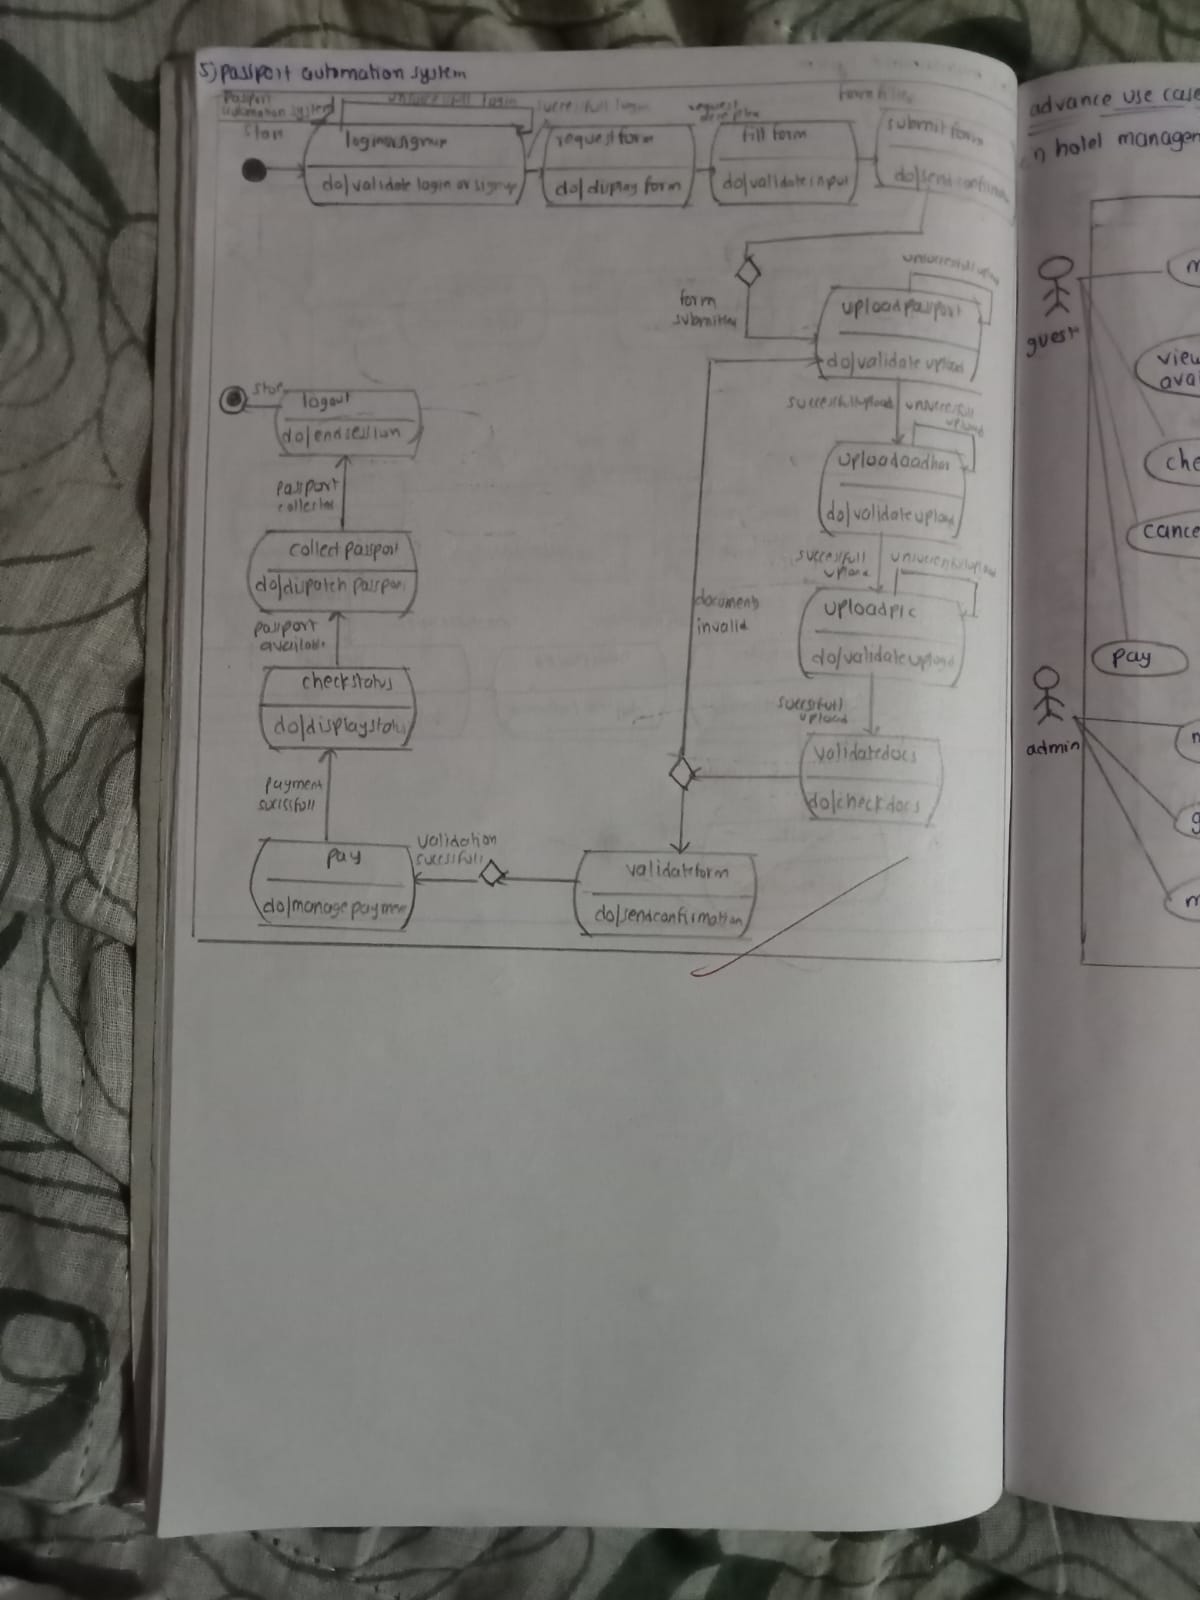 5) Passport automation system
Passport
automation system
unsuccessfull login
successfull login
request
form filled
start
login/signup
do/validate login or signup
request form
do/display form
fill form
do/validate input
submit form
do/send confirma
form
submitted
unsuccessfull upload
upload passport
do/validate upload
successfull upload
unsuccessfull
upload
upload aadhar
do/validate upload
successfull
upload
unsuccessfull upload
upload pic
do/validate upload
successfull
upload
validate docs
do/check docs
documents
invalid
validate form
do/send confirmation
validation
sucessfull
pay
do/manage payment
payment
sucessfull
check status
do/display status
passport
available
collect passport
do/dispatch passport
passport
collected
logout
do/end session
stop
advance use case
n hotel managem
guest
view
avai
che
cance
pay
admin